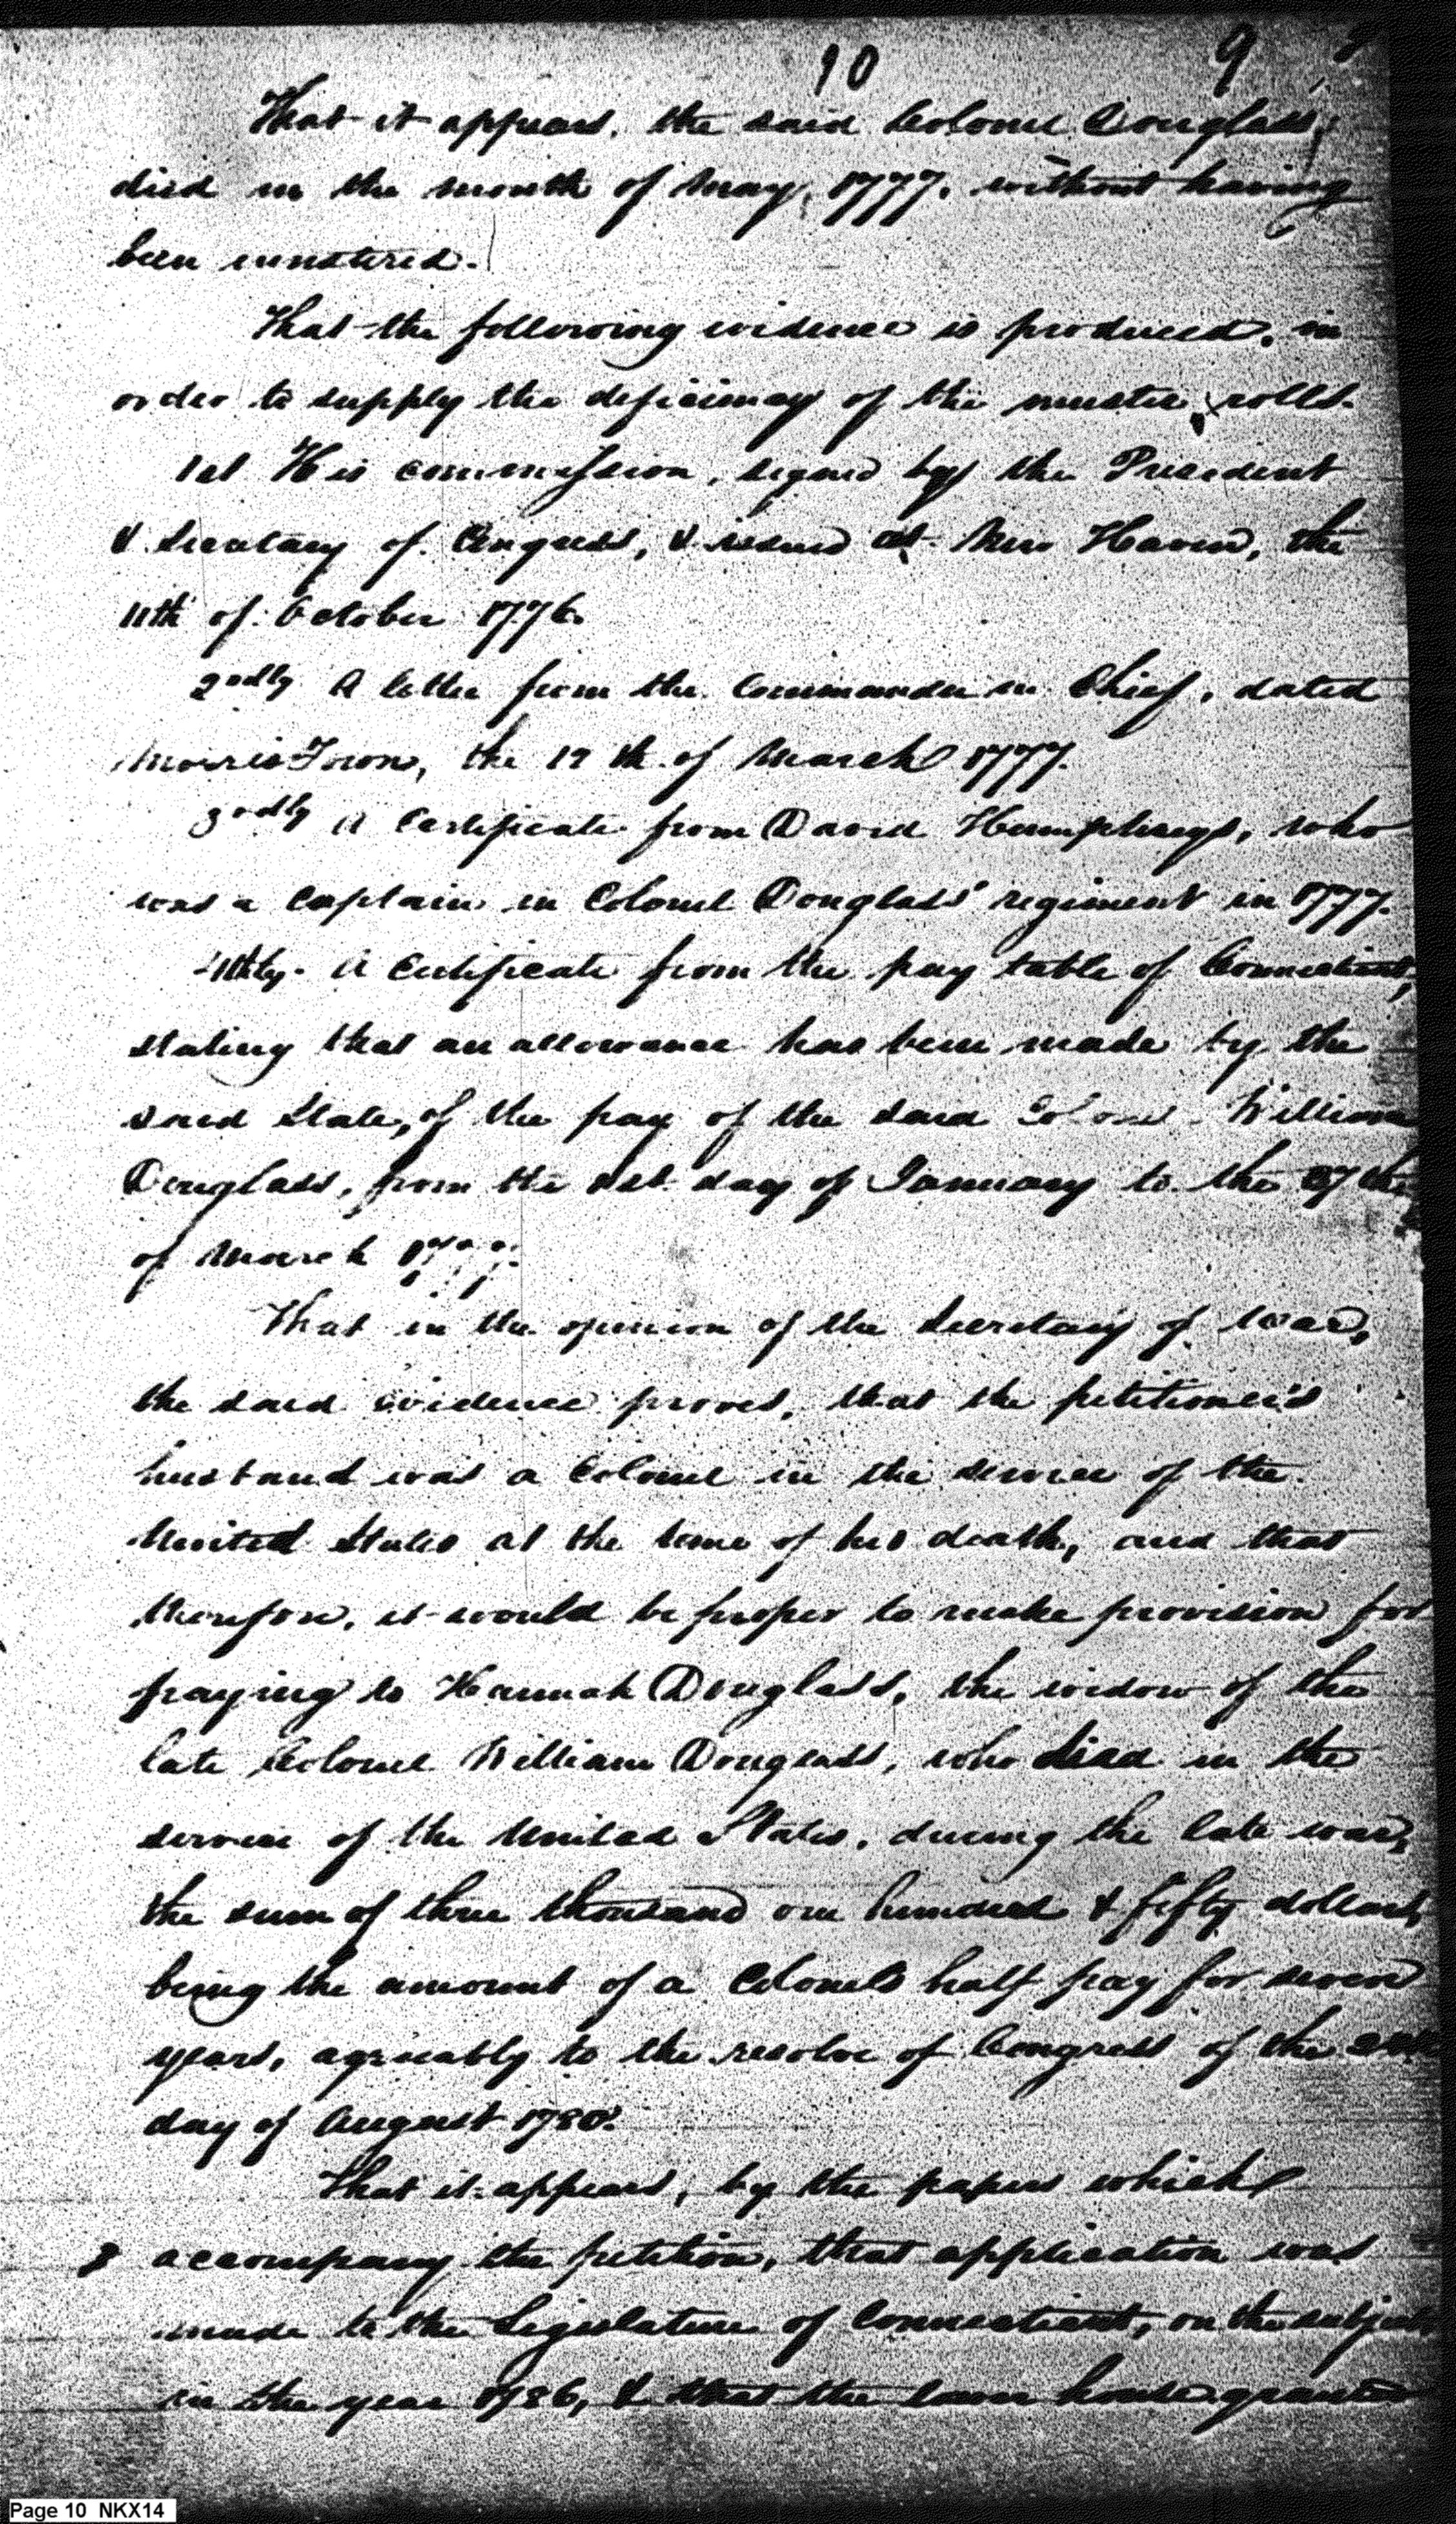 10 9
That it appears, the said Colonel Douglass,
died in the month of May, 1777, without having
been mustered.
That the following evidence is produced, in
order to supply the deficiency of the muster rolls.
1st His commission, signed by the President
& Secretary of Congress, & issued at New Haven, the
11th of October 1776.
2ndly A letter from the Commander in Chief, dated
Morris Town, the 17th of March 1777.
3rdly A Certificate from David Humphreys, who
was a Captain in Colonel Douglass' regiment in 1777.
4thly. A Certificate from the pay table of Connecticut,
stating that an allowance has been made by the
said State, of the pay of the said Colonel William
Douglass, from the 1st day of January to the 27th
of March 1777.
That in the opinion of the Secretary of War,
the said evidence proves, that the petitioner's
husband was a Colonel in the service of the
United States at the time of his death, and that
therefore, it would be proper to make provision for
paying to Hannah Douglass, the widow of the
late Colonel William Douglass, who died in the
service of the United States, during the late war,
the sum of three thousand one hundred & fifty dollars,
being the amount of a Colonels half pay for seven
years, agreeably to the resolve of Congress of the 24th
day of August 1780.
That it appears, by the papers which
accompany the petition, that application was
made to the Legislature of Connecticut, on the subject,
in the year 1786, & that the lower house granted
Page 10 NKX14